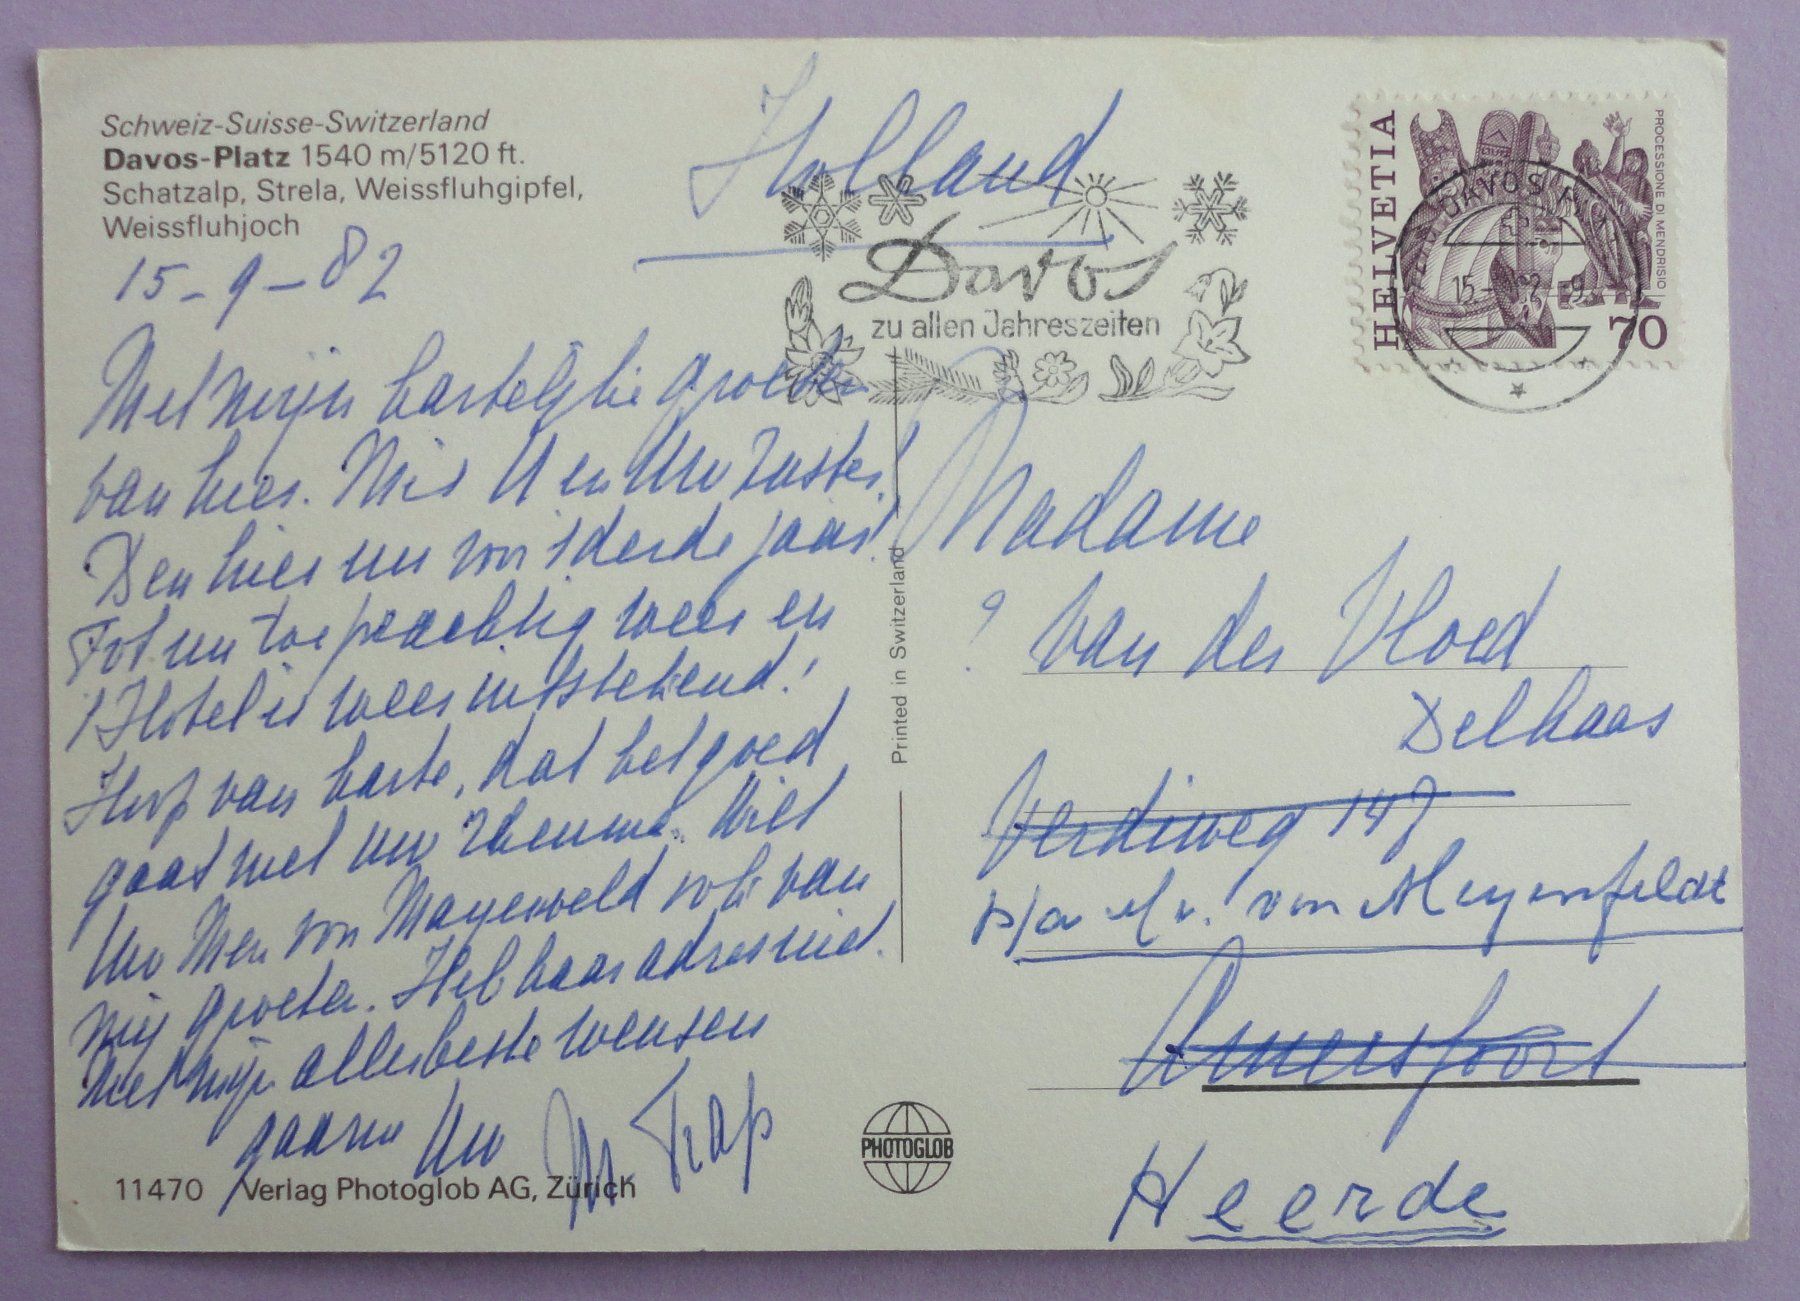 Schweiz-Suisse-Switzerland
Davos-Platz 1540 m/5120 ft.
Schatzalp, Strela, Weissfluhgipfel,
Weissfluhjoch
15-9-82
Met mijn hartelijke groeten
van hier. Mis U en Uw Zuster!
Ben hier nu voor 't derde jaar!
Tot nu toe prachtig weer en
't Hotel is weer uitstekend!
Hoop van harte, dat het goed
gaat met Uw rheuma. Wilt
Uw Mevr von Mayenveld ook van
mij groeten. Heb haar adres niet.
Met mijn allerbeste wensen
gaarne Uw Trap
11470 Verlag Photoglob AG, Zürich
Printed in Switzerland
PHOTOGLOB
Holland
Davos
zu allen Jahreszeiten
HELVETIA
PROCESSIONE DI MENDRISIO
70
DAVOS
15.-9.82-9
Madame
? van der Vloed
Delhaas
Verdiweg 147
p/a Mv. von Meyenfeldt
Amersfoort
Heerde